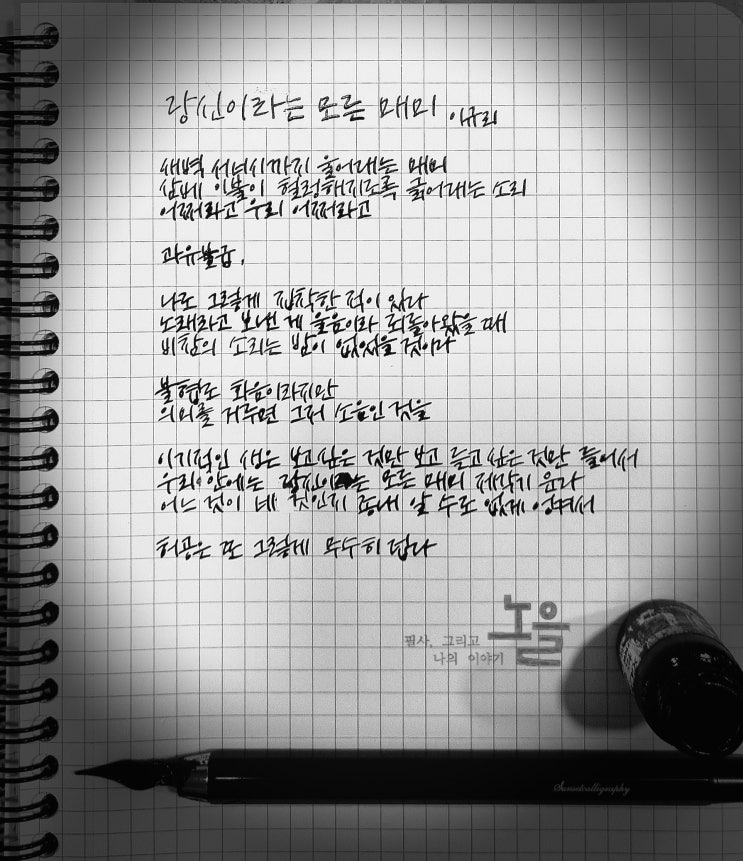 당신이라는 모든 매미 이규리
새벽 서너시까지 울어대는 매미
삼베 이불이 헐렁해지도록 긁어대는 소리
어쩌라고 우리 어쩌라고
과유불급,
나도 그렇게 집착한 적이 있다
노래라고 보낸 게 울음이라 되돌아왔을 때
비참의 소리는 밤이 없었을 것이다
불협도 화음이라지만
의미를 거두면 그저 소음인 것을
이기적인 생은 보고싶은 것만 보고 듣고 싶은 것만 들어서
우리 안에는 당신이라는 모든 매미 제각기 운다
어느 것이 네 것인지 종내 알 수도 없게 엉켜서
허공은 또 그렇게 무수히 덥다
필사, 그리고
나의 이야기
노을
Sunsetcalligraphy